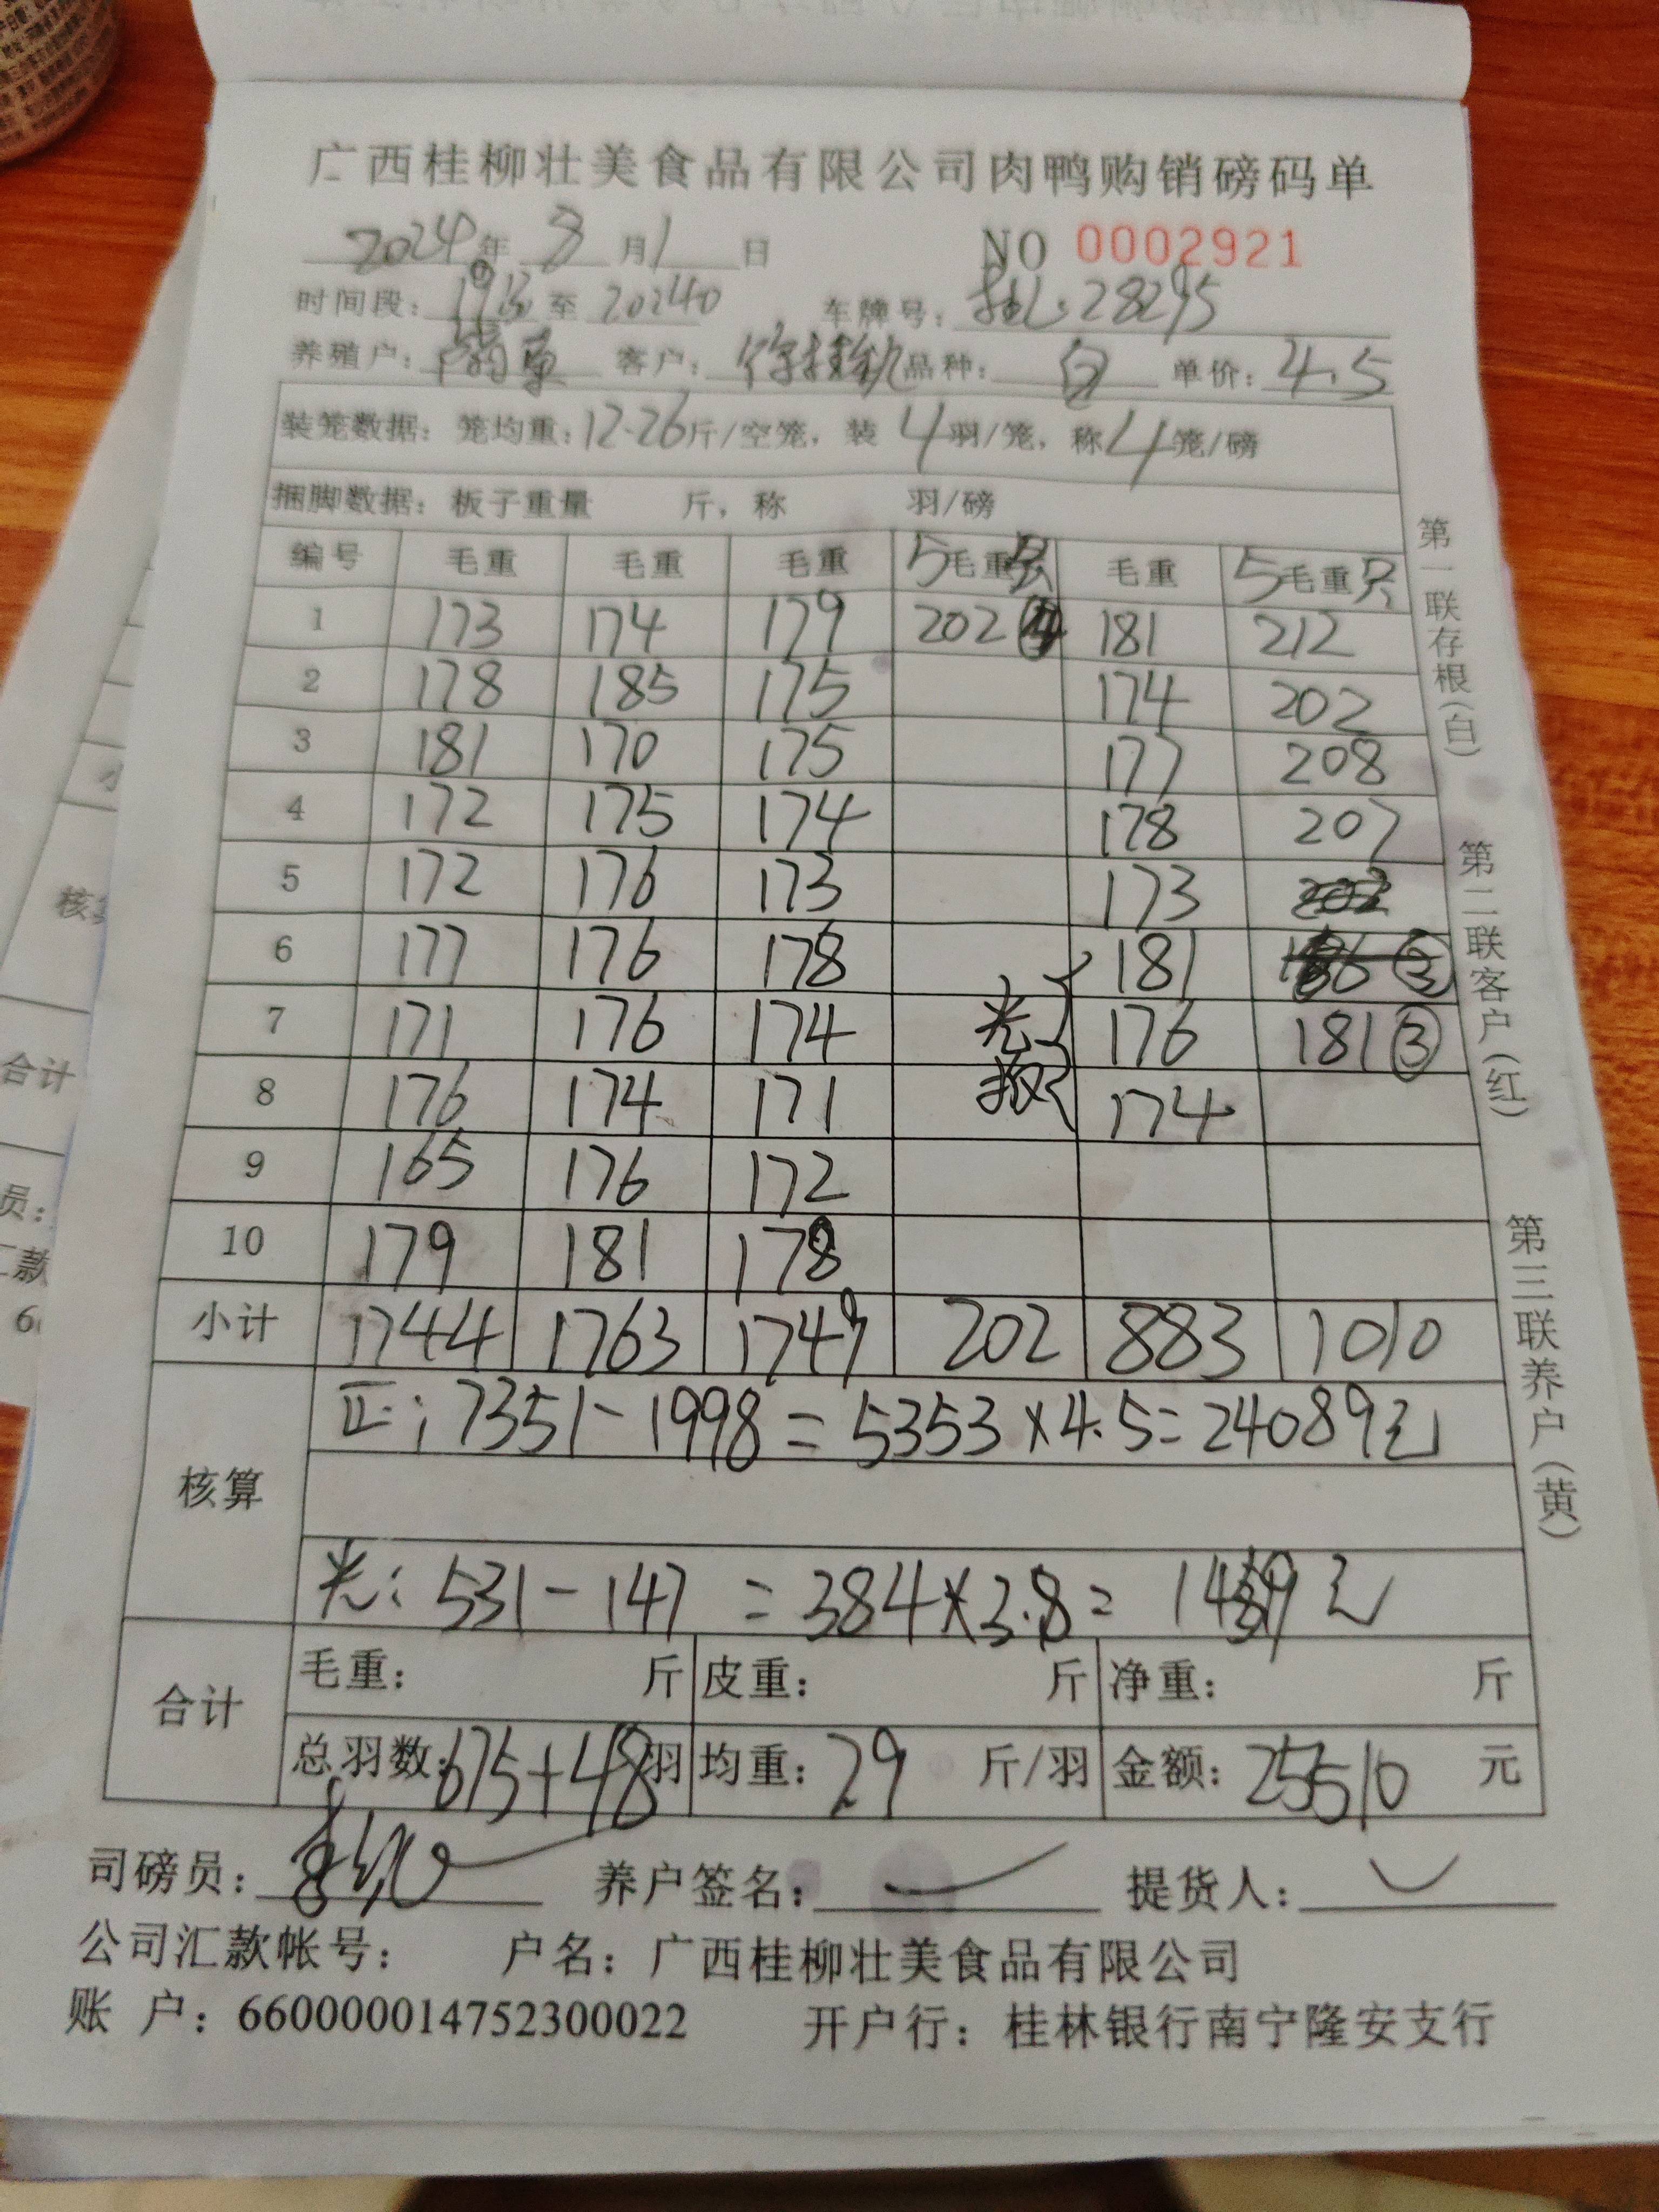 广西桂柳壮美食品有限公司肉鸭购销磅码单
2024年 8月1日 NO 0002921
时间段: 至 20240 车牌号: 桂L·28295
养殖户: 客户: 品种: 白 单价: 4.5
装笼数据: 笼均重: 12-26斤/空笼, 装 4羽/笼, 称4笼/磅
捆脚数据: 板子重量 斤, 称 羽/磅
编号 毛重 毛重 毛重 5毛重只 毛重 5毛重只
1 173 174 179 202 181 212
2 178 185 175 174 202
3 181 170 175 177 208
4 172 175 174 178 207
5 172 176 173 173
6 177 176 178 181
7 171 176 174 光 176 181③
8 176 174 171 174
9 165 176 172
10 179 181 178
小计 1744 1763 1749 202 883 1010
核算
正: 7351-1998=5353×4.5=24089元
光: 531-147=384×3.8=1459元
合计
毛重: 斤 皮重: 斤 净重: 斤
总羽数: 675+48羽 均重: 29 斤/羽 金额: 25510 元
司磅员: 养户签名: 提货人:
公司汇款帐号: 户名: 广西桂柳壮美食品有限公司
账 户: 660000014752300022 开户行: 桂林银行南宁隆安支行
第一联存根(白)
第二联客户(红)
第三联养户(黄)